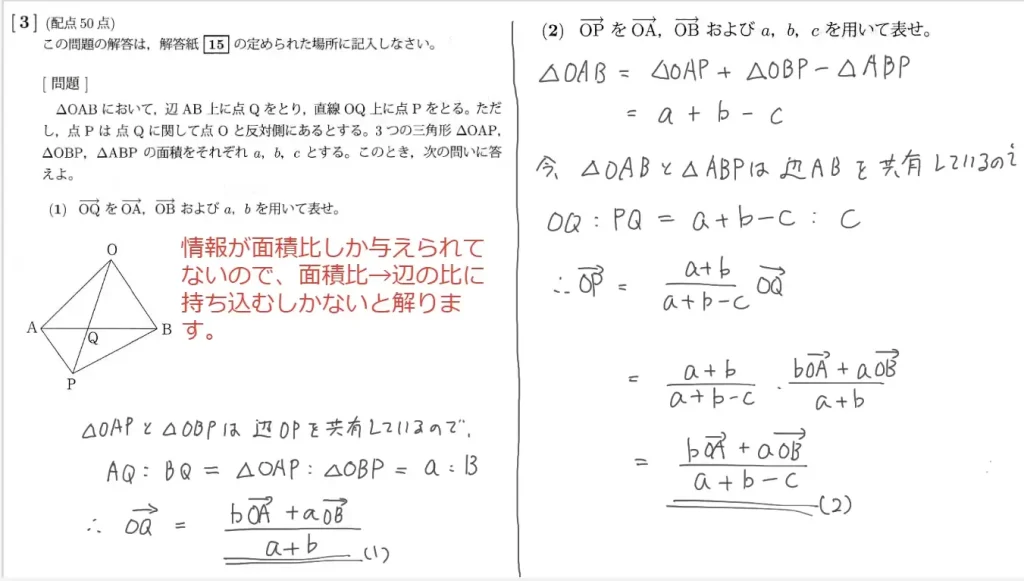 [3] (配点50点)
この問題の解答は，解答紙 15 の定められた場所に記入しなさい。
[問題]
△OABにおいて，辺AB上に点Qをとり，直線OQ上に点Pをとる。ただ
し，点Pは点Qに関して点Oと反対側にあるとする。3つの三角形△OAP，
△OBP，△ABPの面積をそれぞれa，b，cとする。このとき，次の問いに答
えよ。
(1) $\overrightarrow{OQ}$を$\overrightarrow{OA}$，$\overrightarrow{OB}$およびa，bを用いて表せ。
情報が面積比しか与えられて
ないので、面積比→辺の比に
持ち込むしかないと解りま
す。
O
A
B
Q
P
△OAPと△OBPは辺OPを共有しているので，
AQ : BQ = △OAP : △OBP = a : B
∴ $\overrightarrow{OQ} = \frac{b\overrightarrow{OA} + a\overrightarrow{OB}}{a+b}$ (1)
(2) $\overrightarrow{OP}$を$\overrightarrow{OA}$，$\overrightarrow{OB}$およびa，b，cを用いて表せ。
△OAB = △OAP + △OBP − △ABP
= a + b − c
今、△OABと△ABPは辺ABを共有しているので
OQ : PQ = a+b−c : c
∴ $\overrightarrow{OP} = \frac{a+b}{a+b-c}\overrightarrow{OQ}$
$= \frac{a+b}{a+b-c} \cdot \frac{b\overrightarrow{OA} + a\overrightarrow{OB}}{a+b}$
$= \frac{b\overrightarrow{OA} + a\overrightarrow{OB}}{a+b-c}$ (2)